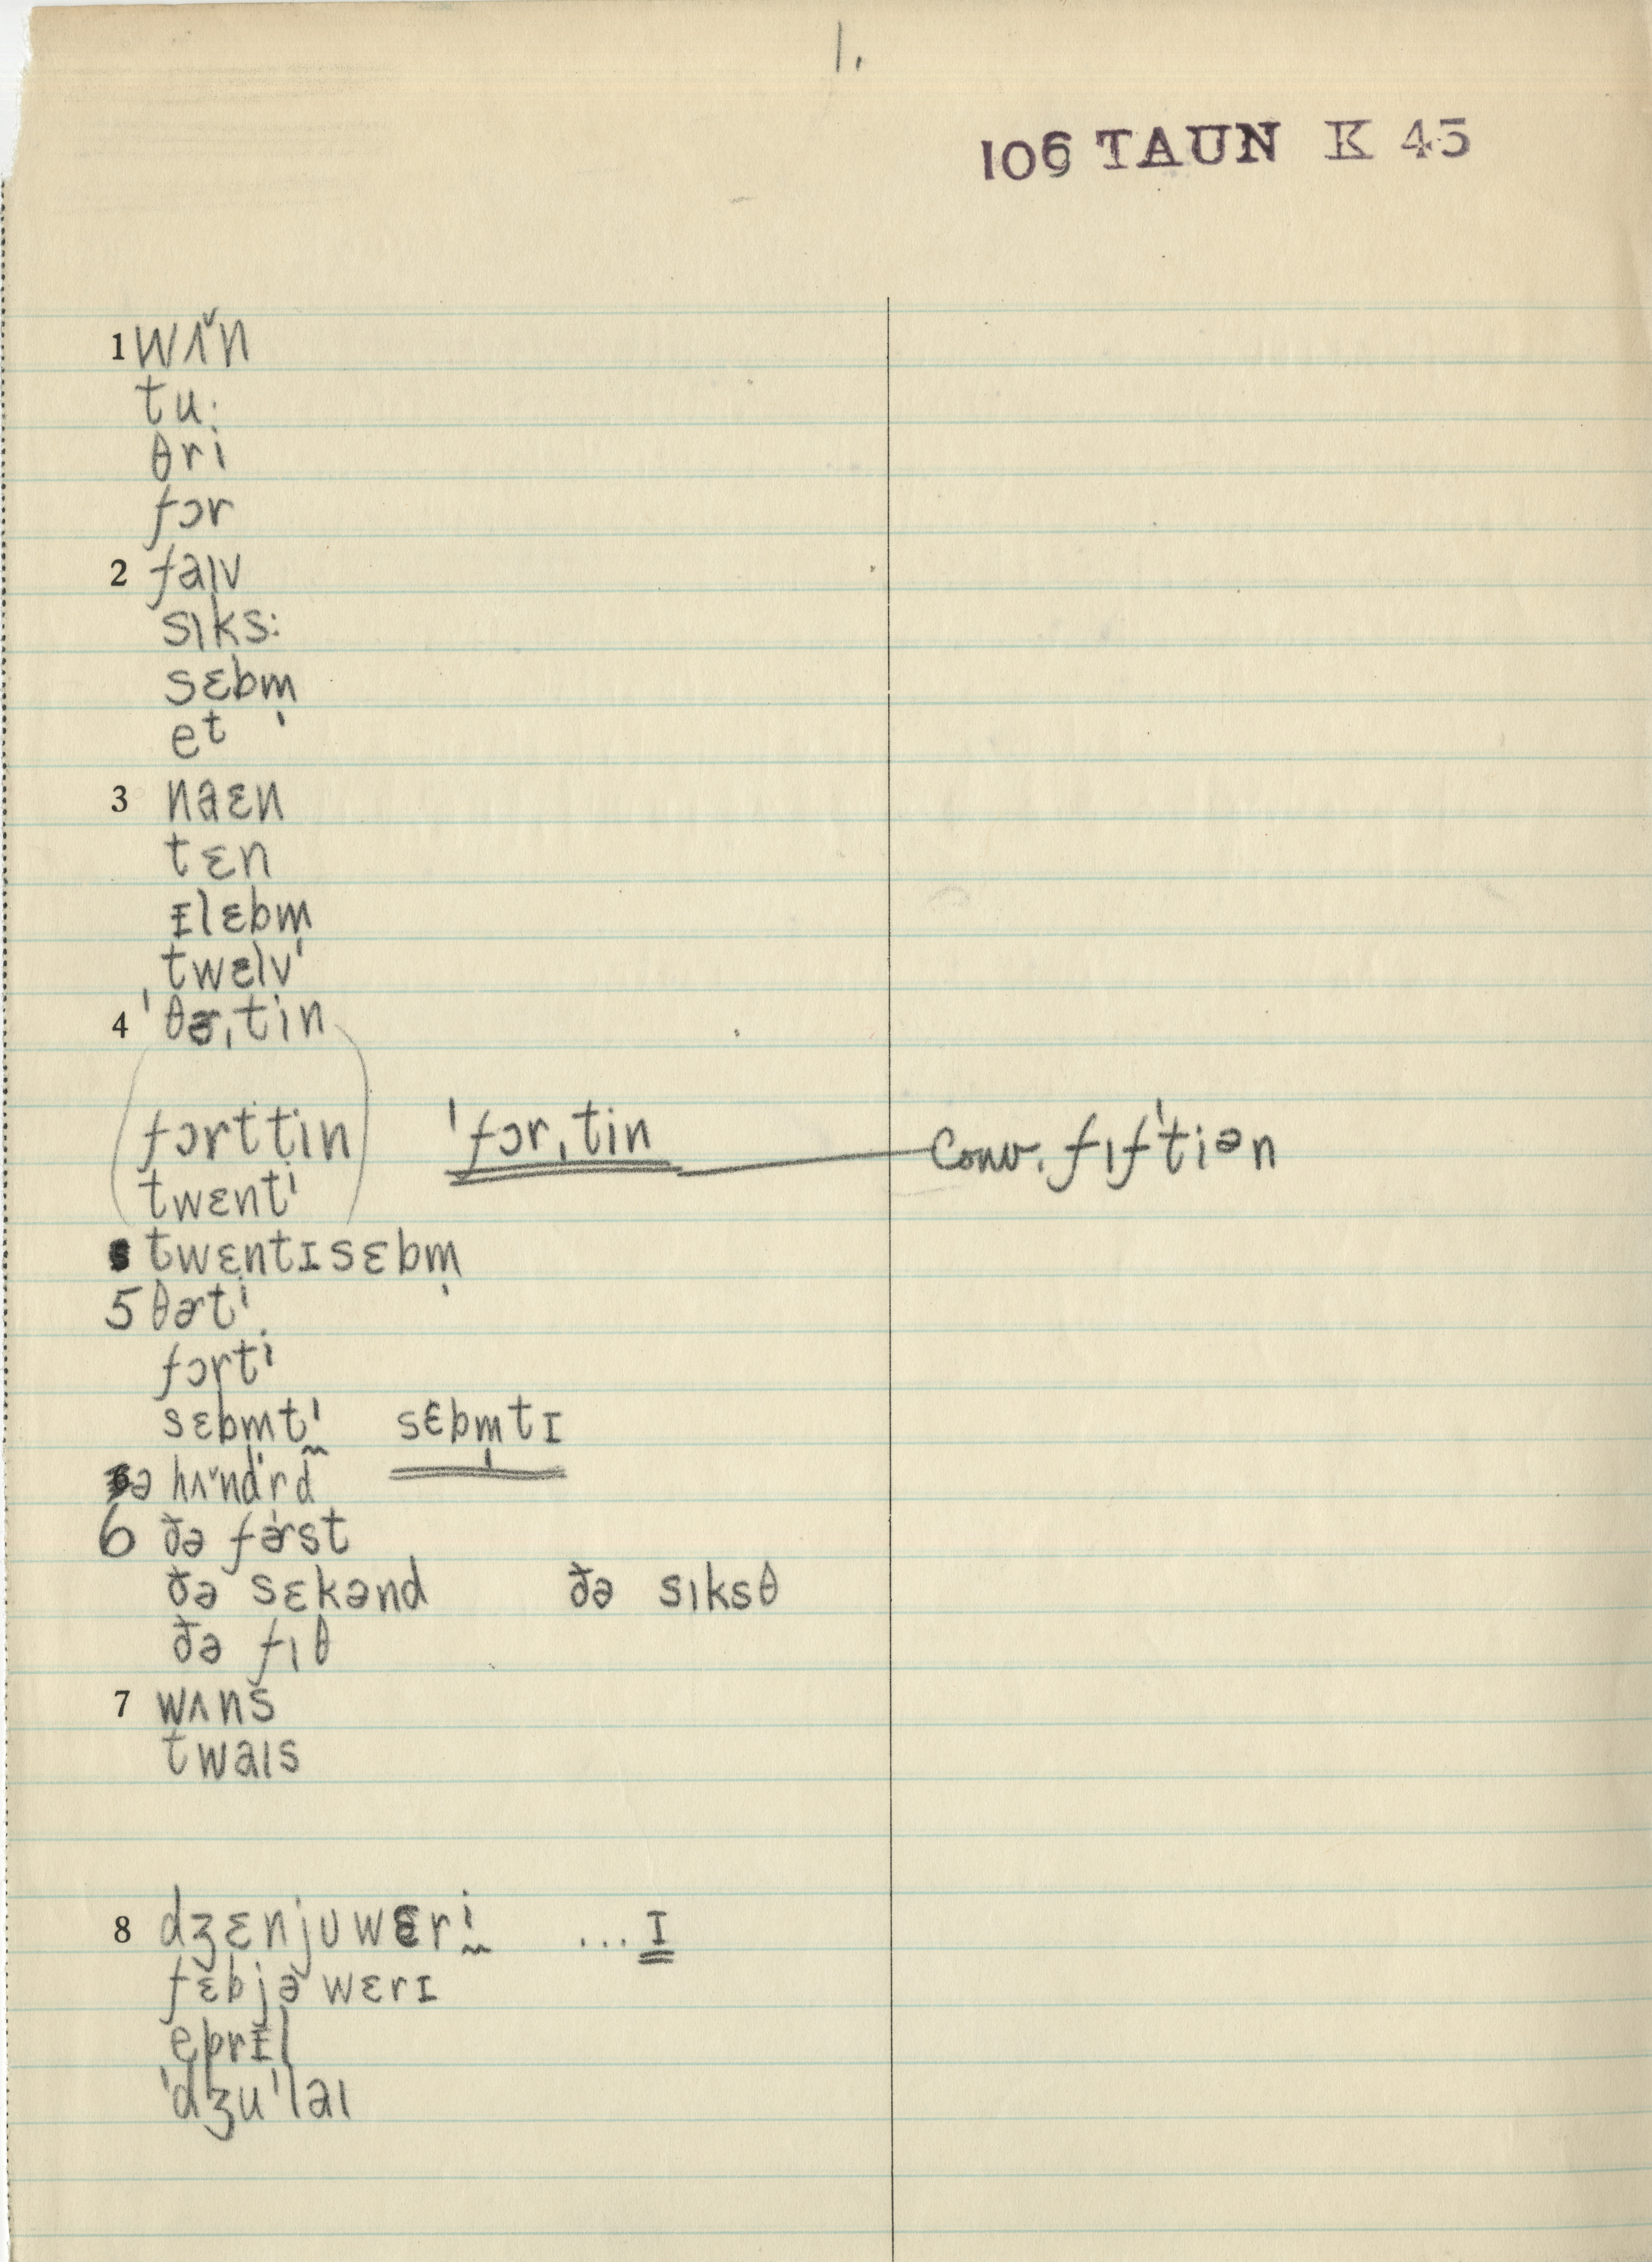 1.
106 TAUN K 45
1 wʌ̌n
tu·
θri
fɔr
2 faɪv
sɪks:
sɛbm̩
et
3 naɛn
tɛn
ɪlɛbm̩
twɛlv
4 ˈθɚˌtin
fɔrttin ˈfɔrˌtin Conv. fɪfˈtiən
twɛnti
twɛntɪsɛbm̩
5 θɚti
fɔrti
sɛbmti sɛbm̩tɪ
ə hʌ̌ndrd
6 ðə fɚst
ðə sɛkənd ðə sɪksθ
ðə fɪθ
7 wʌns
twaɪs
8 dʒɛnjuwɛri ...ɪ
fɛbjəwɛrɪ
eprɪl
ˈdʒuˈlaɪ